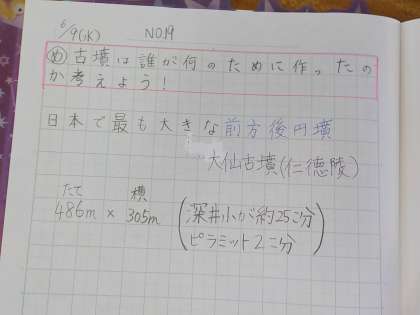 6/9(水) NO.19
め 古墳は誰が何のために作ったの
か考えよう！
日本で最も大きな前方後円墳
大仙古墳(仁徳陵)
たて 横
486m × 305m
(深井小が約25こ分
ピラミット2こ分)